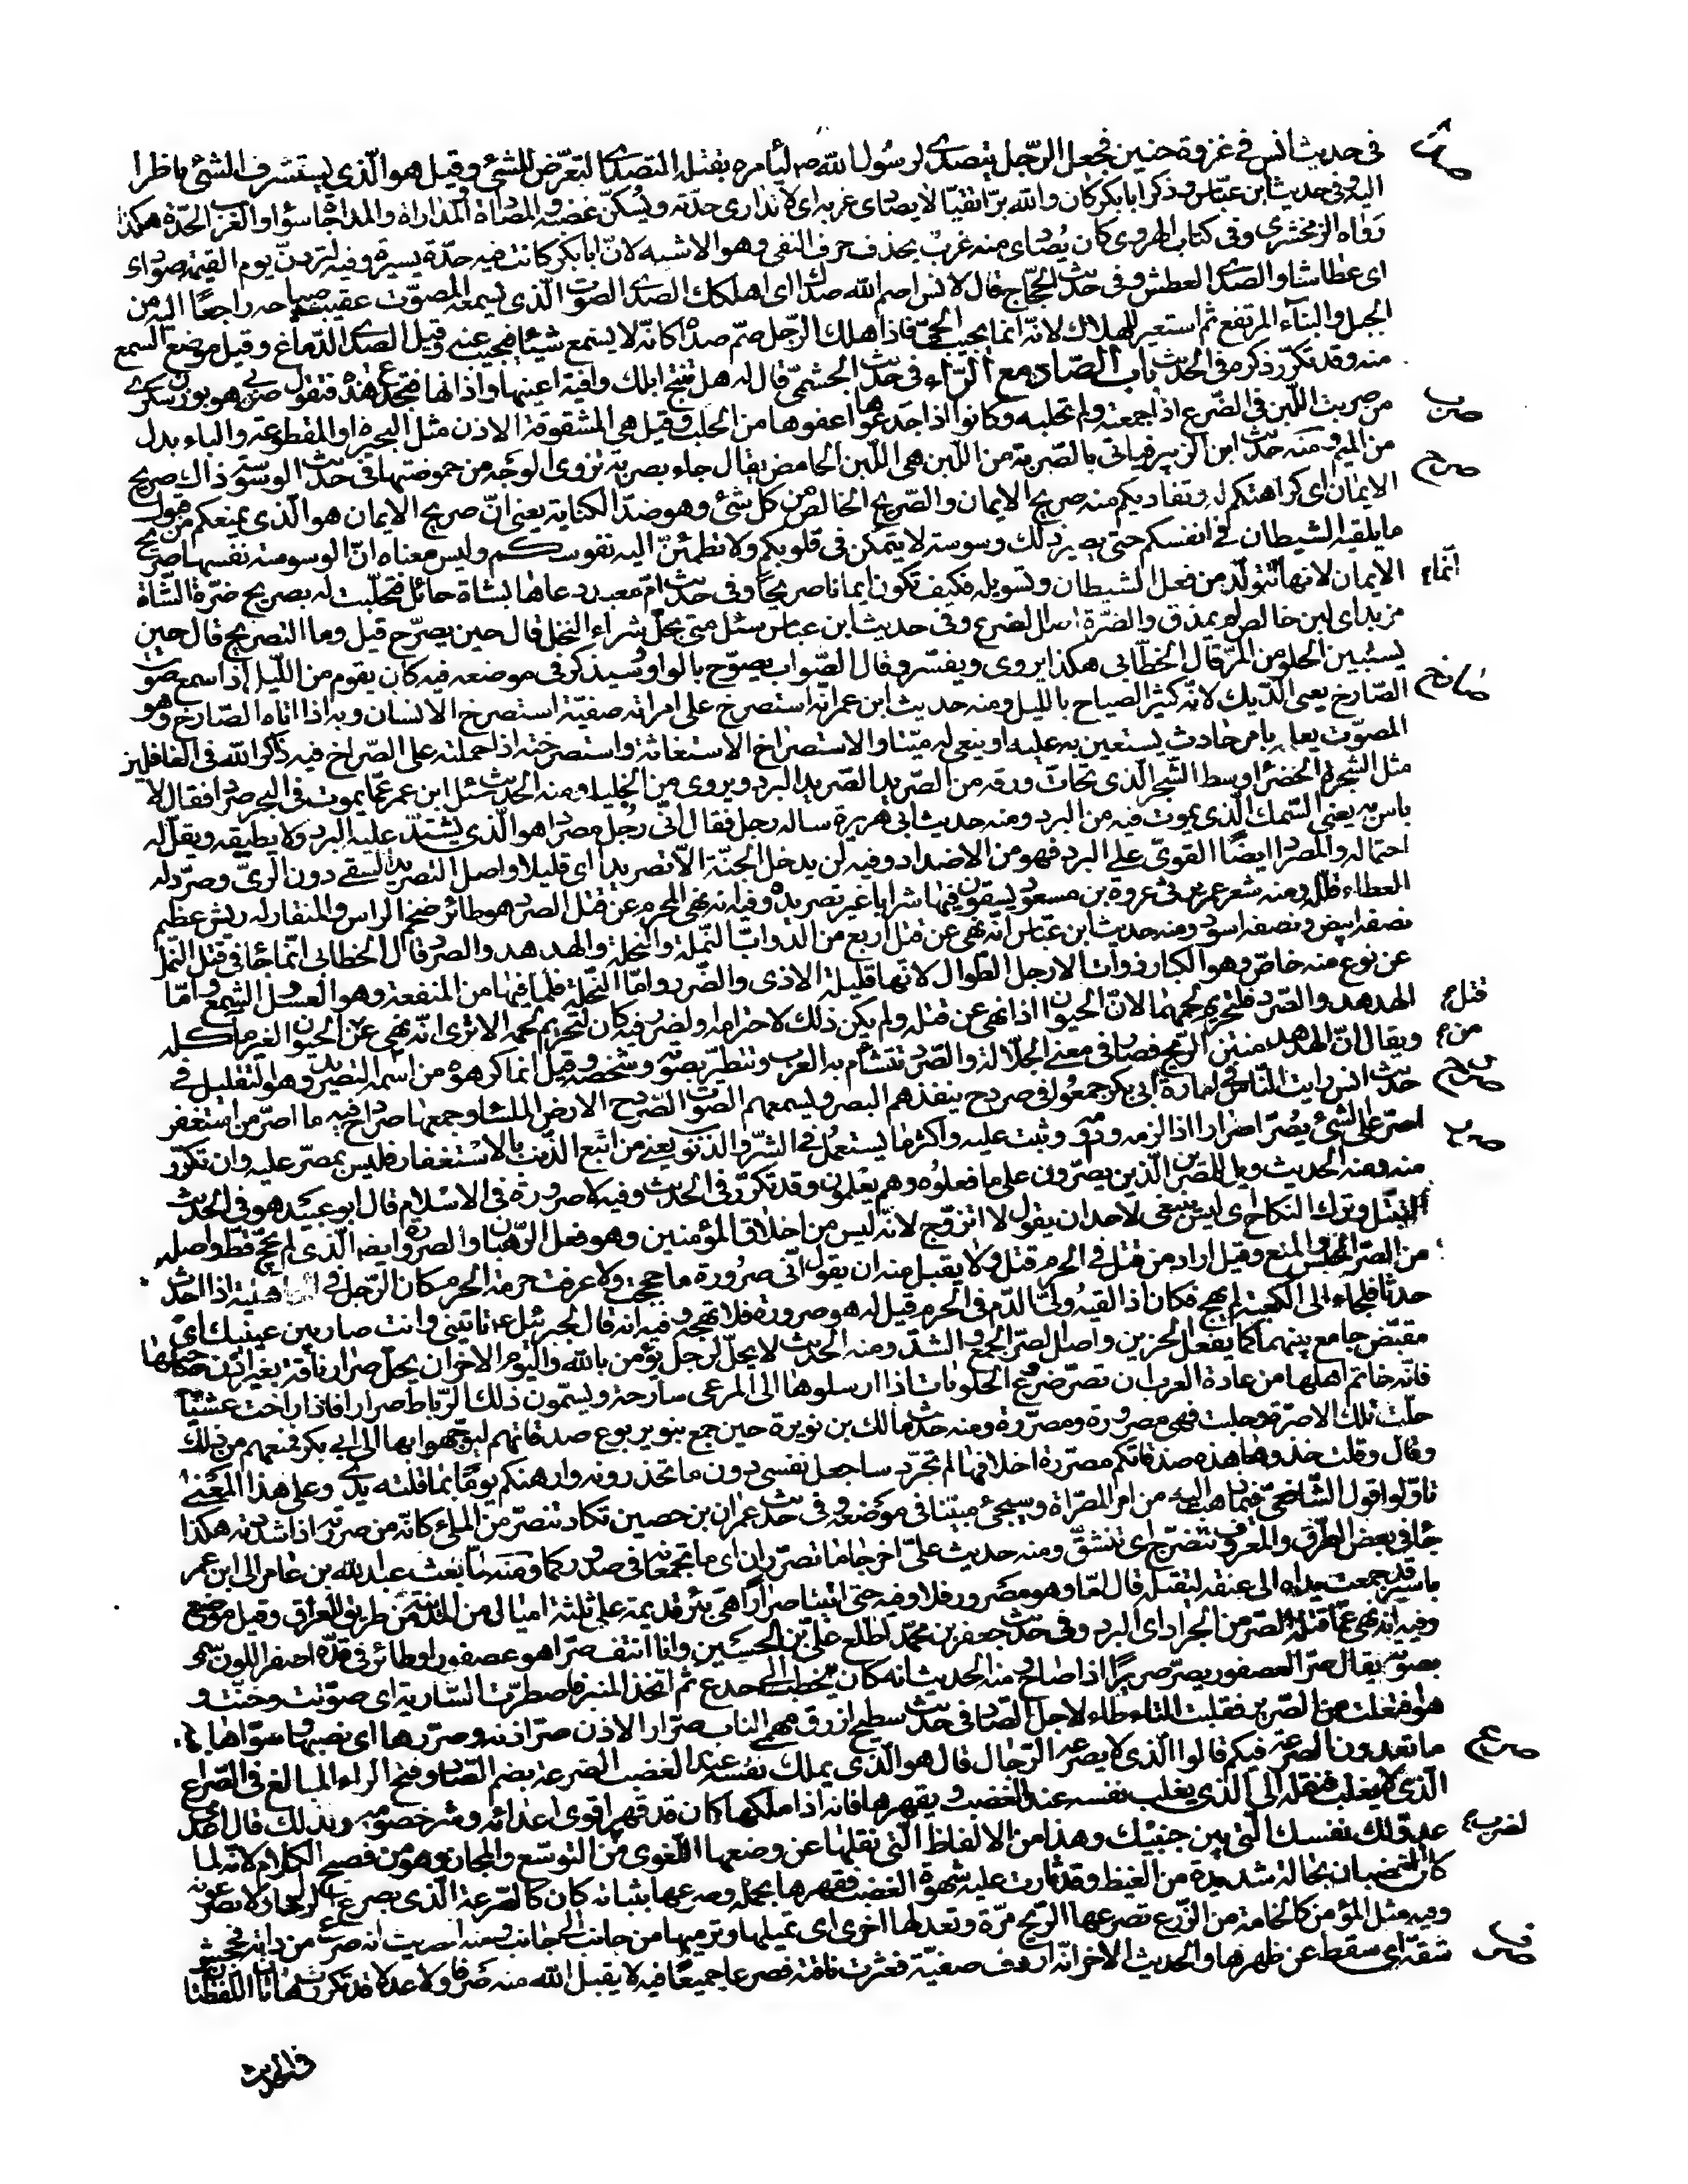 في حديث انس في غزوة حنين فجعل الرّجل يتصدى لرسُول الله صم ليأمره بقتله التصدى التعرّض للشئ وقيل هو الّذى يستشرف الشئ ناظرا
اليه وفى حديث ابن عبّاس وذكر ابا بكر كان والله برّا تقيّا لا يصادى غربه اى لا تدارى حدّته ويسكن غضبه والمصاداة والمداراة والمداجاة سواء والغرب الحدّة هكذا
رواه الزمخشرى وفى كتاب الهروى كان يُصادى منه غربٌ بحذف حرف النفى وهو الاشبه لانّ ابا بكر كانت فيه حدّة يسيرة وفيه لتردنّ يوم القيمة صوادى
اى عطاشا والصدى العطش وفى حديث الحجّاج قال لانس اصم الله صداك اى اهلكك الصدى الصّوت الّذى يسمعه المصوّت عقيب صياحه راجعًا اليه من
الجبل والبنآء المرتفع ثم استعير للهلاك لانّه انما يجيب الحىّ فاذا هلك الرّجل صمّ صداه كانّه لا يسمع شيئا فيجيب عنه وقيل الصدى الدّماغ وقيل موضع السمع
منه وقد تكرّر ذكره فى الحديث باب الصّاد مع الرّاء فى حديث الجشمىّ قال له هل تنتج ابلك وافية اعينها واذانها فتجدع هذه فتقول صربى هو بوزن سكرى
صرب من صربت اللّبن فى الضّرع اذا جمعته ولم تحلبه وكانوا اذا جدعوها اعفوها من الحلب وقيل هى المشقوقة الاذن مثل البحيرة او المقطوعة والباء بدل
من الميم ومنه حديث ابن الزبير فياتى بالصّربة من اللّبن هى اللّبن الحامض يقال جاء بصربة تزوى الوجه من حموضتها فى حديث الوسوسة ذاك صريح
صرح الايمان اى كراهتكم له وتفاديكم منه صريح الايمان والصّريح الخالص من كل شئ وهو ضدّ الكناية يعنى انّ صريح الايمان هو الّذى يمنعكم من قبول
ما يلقيه الشيطان فى انفسكم حتى يصير ذلك وسوسة لا يتمكن فى قلوبكم ولا تطمئنّ اليه نفوسكم وليس معناه انّ الوسوسة نفسها صريح
الايمان لانها انّما تتولّد من فعل الشيطان وتسويله فكيف تكون ايمانا صريحًا وفى حديث امّ معبد دعاها بشاة حائل فتحلّبت له بصريح ضرّة الشّاة
مزبد اى لبن خالص لم يمذق والضرّة اصل الضرع وفى حديث ابن عباس سئل متى يحلّ شراء النخل قال حين يصرّح قيل وما التصريح قال حين
يستبين الحلو من المرّ قال الخطّابى هكذا يروى ويفسّر وقال الصّواب يصوّح بالواو وسيذكر فى موضعه فيه كان يقوم من اللّيل اذا سمع صوت
صرخ الصّارخ يعنى الدّيك لانّه كثير الصياح بالليل ومنه حديث ابن عمر انّه استصرخ على امراته صفيّة استصرخ الانسان وبه اذا اتاه الصّارخ وهو
المصوّت يعلمه بامر حادث يستعين به عليه او ينعى له ميّتا والاستصراخ الاستغاثة واستصرخته اذا حملته على الصّراخ فيه ذاكر الله فى الغافلين
مثل الشجرة الخضراء وسط الشّجر الّذى تحاتّ ورقه من الصّريد الصّريد البرد ويروى من الجليد ومنه الحديث سئل ابن عمر عمّا يموت فى البحر صردا فقال لا
باس به يعنى السّمك الّذى يموت فيه من البرد ومنه حديث ابى هريرة ساله رجل فقال انّى رجُل مصراد هو الّذى يشتدّ عليه البرد ولا يطيقه ويقلّ له
احتماله والمصراد ايضًا القوىّ على البرد فهو من الاضداد وفيه لن يدخل الجنّة الّا تصريدا اى قليلا واصل التصريد السقى دون الرىّ وصرّد له
العطاء قلّله ومنه شعر عمر يرثى عروة بن مسعود يسقون فيها شرابا غير تصريد وفيه انه نهى المحرم عن قتل الصرد هو طائر ضخم الراس والمنقار له ريش عظيم
نصفه ابيض ونصفه اسود ومنه حديث ابن عبّاس انّه نهى عن قتل اربع من الدّوابّ النّملة والنحلة والهدهد والصرد قال الخطابى انّما جاء فى قتل النّمل
عن نوع منه خاصّ وهو الكبار ذوات الارجل الطّوال لانّها قليلة الاذى والضّرر وامّا النّحلة فلما فيها من المنفعة وهو العسل والشمع وامّا
الهدهد والصّرد فلتحريم لحمها لانّ الحيوان اذا نهى عن قتله ولم يكن ذلك لاحترامه ولضرر فيه كان لتحريم لحمه الا ترى انّه نهى عن قتل الحيوان لغير ماكله
ويقال انّ الهدهد منتن الرّيح فصار فى معنى الجلّالة والصّرد تتشأم به العرب وتتطيّر بصوته وشخصه وقيل انما كرهوه من اسمه التصريد وهو التقليل فى
صردح حديث انس رايت النّاس فى امارة ابى بكر جمعوا فى صردح ينفذهم البصر ويسمعهم الصّوت الصّردح الارض الملساء وجمعها صرادح فيه ما اصرّ من استغفر
صرر اصرّ على الشئ يُصرّ اصرارا اذا لزمه وداومه وثبت عليه واكثر ما يستعمل فى الشرّ والذنوب يعنى من اتبع الذّنب بالاستغفار فليس بمصرّ عليه وان تكرّر
منه ومنه الحديث ويل للمصرّين الّذين يصرّون على ما فعلوه وهم يعلمون وقد تكرّر فى الحديث وفيه لا صرورة فى الاسلام قال ابو عبيد هو فى الحديث
التبتّل وترك النكاح اى ليس ينبغى لاحد ان يقول لا اتزوّج لانّه ليس من اخلاق المؤمنين وهو فعل الرّهبان والصرورة ايضا الّذى لم يحجّ قطّ واصله
من الصّرّ الحبس والمنع وقيل اراد من قتل فى الحرم قتل ولا يقبل منه ان يقول انّى صرورة ما حججت ولا عرفت حرمة الحرم كان الرّجل فى الجاهلية اذا احدث
حدثا فلجاء الى الكعبة لم يهج فكان اذا لقيه ولىّ الدّم فى الحرم قيل له هو صرورة فلا تهجه وفيه انه قال لجبرئيل عم تاتينى وانت صارّ بين عينيك اى
مقبّض جامع بينهما كما يفعل الحزين واصل الصّرّ الجمع والشدّ ومنه الحديث لا يحلّ لرجل يؤمن بالله واليوم الاخر ان يحلّ صرار ناقة بغير اذن صاحبها
فانّه خاتم اهلها من عادة العرب ان تصرّ ضروع الحلوبات اذا ارسلوها الى المرعى سارحة ويسمّون ذلك الرّباط صرارا فاذا راحت عشيّا
حلّت تلك الاصرّة وحلبت فهى مصرورة ومصرّرة ومنه حديث مالك بن نويرة حين جمع بنو يربوع صدقاتهم ليوجّهوا بها الى ابى بكر فمنعهم من ذلك
وقال وقلت خذوها هذه صدقاتكم مصرّرة اخلافها لم تجرّد ساجعل نفسى دون ما تحذرونه وارهنكم يومًا بما قلته يدى وعلى هذا المعنى
تاوّلوا قول الشّافعىّ فيما ذهب اليه من امر المصرّاة وسيجئ مبيّنا فى موضعه وفى حديث عمران بن حصين تكاد تنصرّ من الملئ كانّه من صررته اذا شددته هكذا
جاء فى بعض الطّرق والمعروف تنضرّج اى تنشقّ ومنه حديث علىّ اخرجا ما تصرّران اى ما تجمعانه فى صدوركما ومنه لمّا بعث عبد الله بن عامر الى ابن عمر
باسير قد جمعت يداه الى عنقه ليقتله قال امّا وهو مصرور فلا وفيه حتى اتينا صرارًا هى بئر قديمة على ثلثة اميال من المدينة من طريق العراق وقيل موضع
وفيه انّه نهى عمّا قتله الصّرّ من الجراد اى البرد وفى حديث جعفر بن محمّد اطّلع علىّ ابن الحسين وانا انتف صرّا هو عصفور او طائر فى قدّه اصفر اللون سمى
بصوته يقال صرّ العصفور يصرّ صريرًا اذا صاح ومنه الحديث انه كان يخطب الى جذع ثم اتخذ المنبر فاصطرّت السّارية اى صوّتت وحنّت و
هو افتعلت من الصّرير فقلبت التاء طاء لاجل الصّاد فى حديث سطيح ازرق مهمى الناب صرّار الاذن صرّ اذنه وصرّرها اى نصبها وسوّاها
صرع ما تعدون الصرعة فيكم قالوا الّذى لا يصرعه الرّجال قال هو الّذى يملك نفسه عند الغضب الصرعة بضم الصّاد وفتح الراء المبالغ فى الصّراع
الّذى لا يغلب فنقله الى الّذى يغلب نفسه عند الغضب ويقهرها فانه اذا ملكها كان قد قهر اقوى اعدائه وشر خصومه وبذلك قال اعدى
عدوّ لك نفسك الّتى بين جنبيك وهذا من الالفاظ الّتى نقلها عن وضعها اللّغوى لضرب من التوسّع والمجاز وهو من فصيح الكلام لانّه لما
كان الغضبان بحالة شديدة من الغيظ وقد ثارت عليه شهوة الغضب فقهرها بحلمه وصرعها بثباته كان كالصّرعة الّذى يصرع الرّجال ولا يصرعونه
وفيه مثل المؤمن كالخامة من الزّرع تصرعها الرّيح مرّة وتعدلها اخرى اى تميلها وترميها من جانب الى جانب ومنه الحديث انه صرع من دابّة فجحش
صرف شقّه اى سقط عن ظهرها والحديث الاخر انّه اردف صفيّة فعثرت ناقته فصرعا جميعًا فيه لا يقبل الله منه صرفا ولا عدلا قد تكررت هاتان اللفظتان
فى الحديث